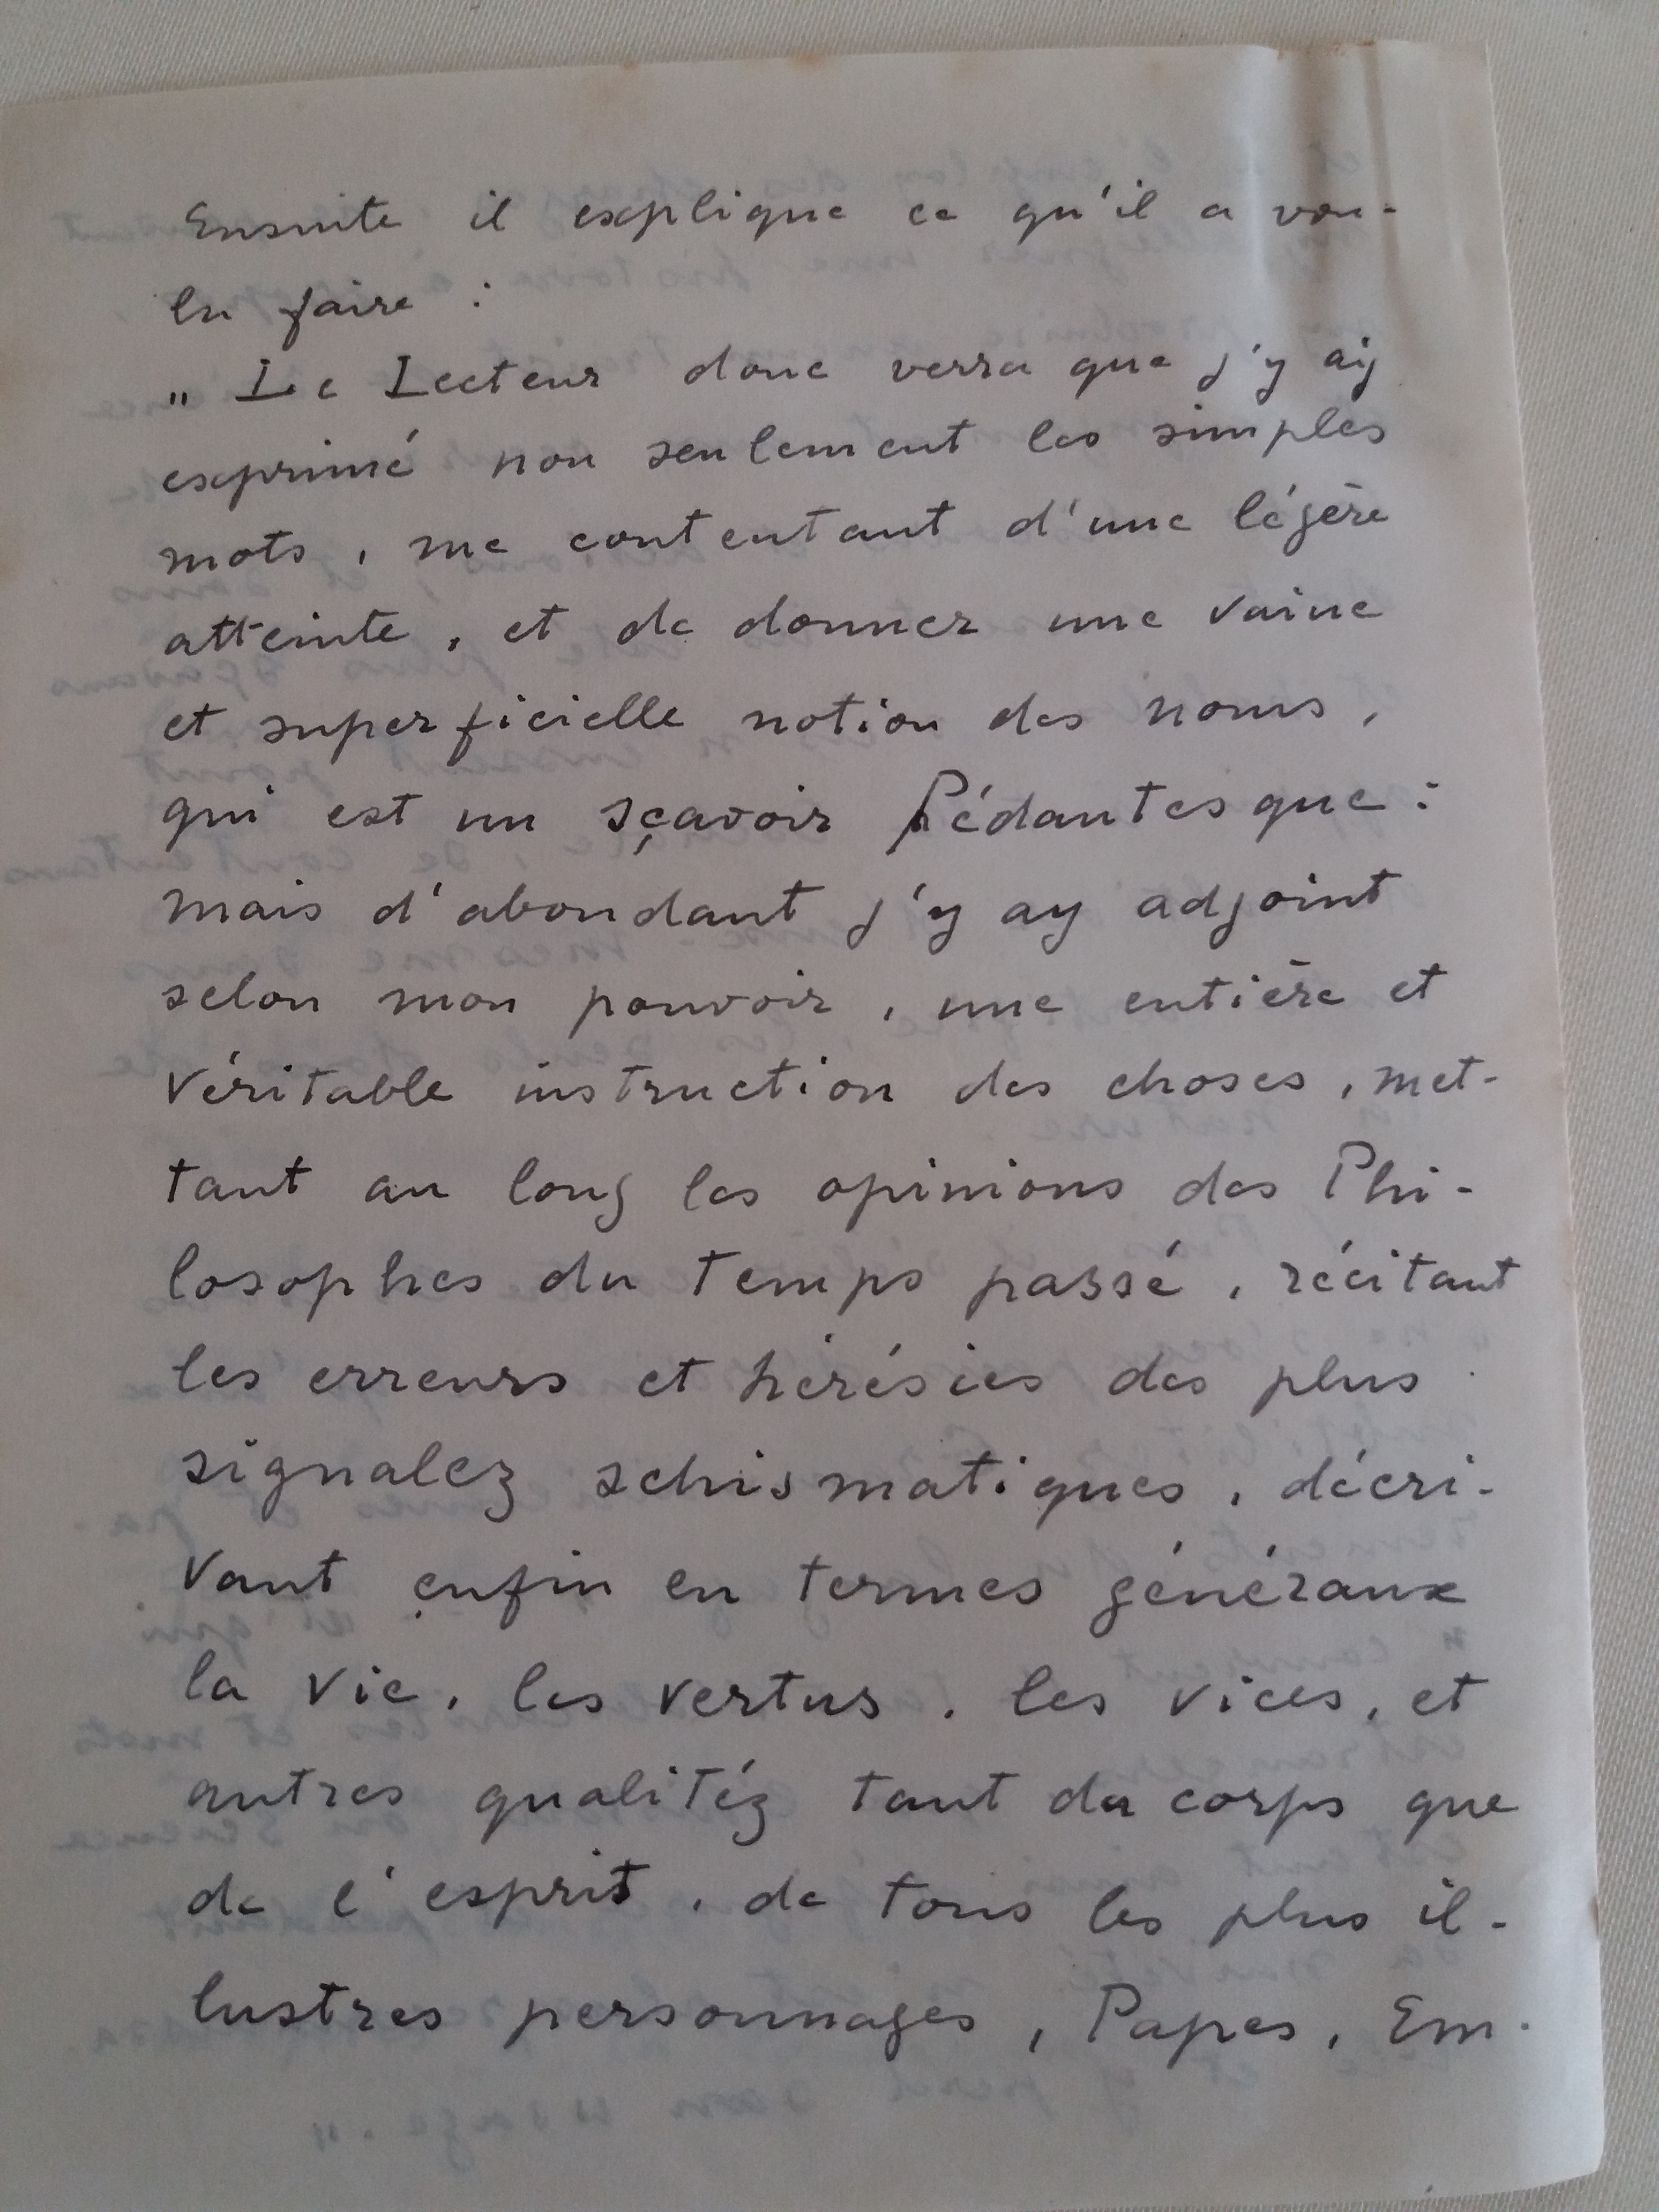 Ensuite il explique ce qu'il a vou-
lu faire :
„ Le Lecteur donc verra que j'y ay
exprimé non seulement les simples
mots, me contentant d'une légère
atteinte, et de donner une vaine
et superficielle notion des noms,
qui est un sçavoir Pédantesque :
mais d'abondant j'y ay adjoint
selon mon pouvoir, une entière et
véritable instruction des choses, met-
tant au long les opinions des Phi-
losophes du temps passé, récitant
les erreurs et hérésies des plus
signalez schismatiques, décri-
vant enfin en termes généraux
la vie, les vertus, les vices, et
autres qualitéz tant du corps que
de l'esprit, de tous les plus il-
lustres personnages, Papes, Em-